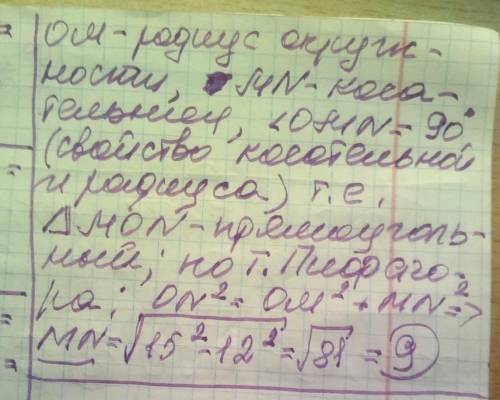 ОМ-радиус окруж-
ности, MN-каса-
тельной, ∠OMN=90°
(свойство касательной
и радиуса) т.е.
△MON-прямоуголь-
ный; по т. Пифаго-
ра: ON²=OM²+MN²=>
MN=√15²-12²=√81=9